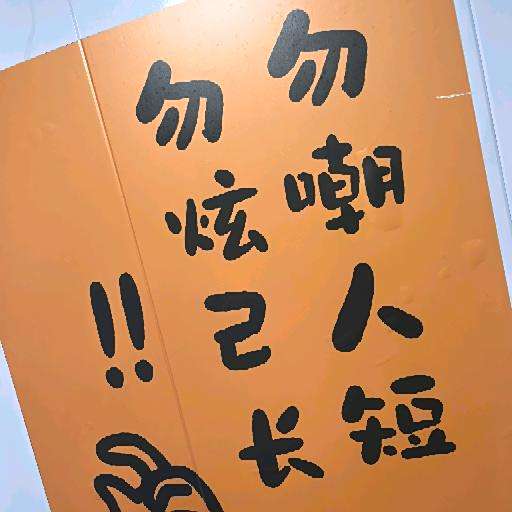 勿嘲人短
勿炫己长
!!